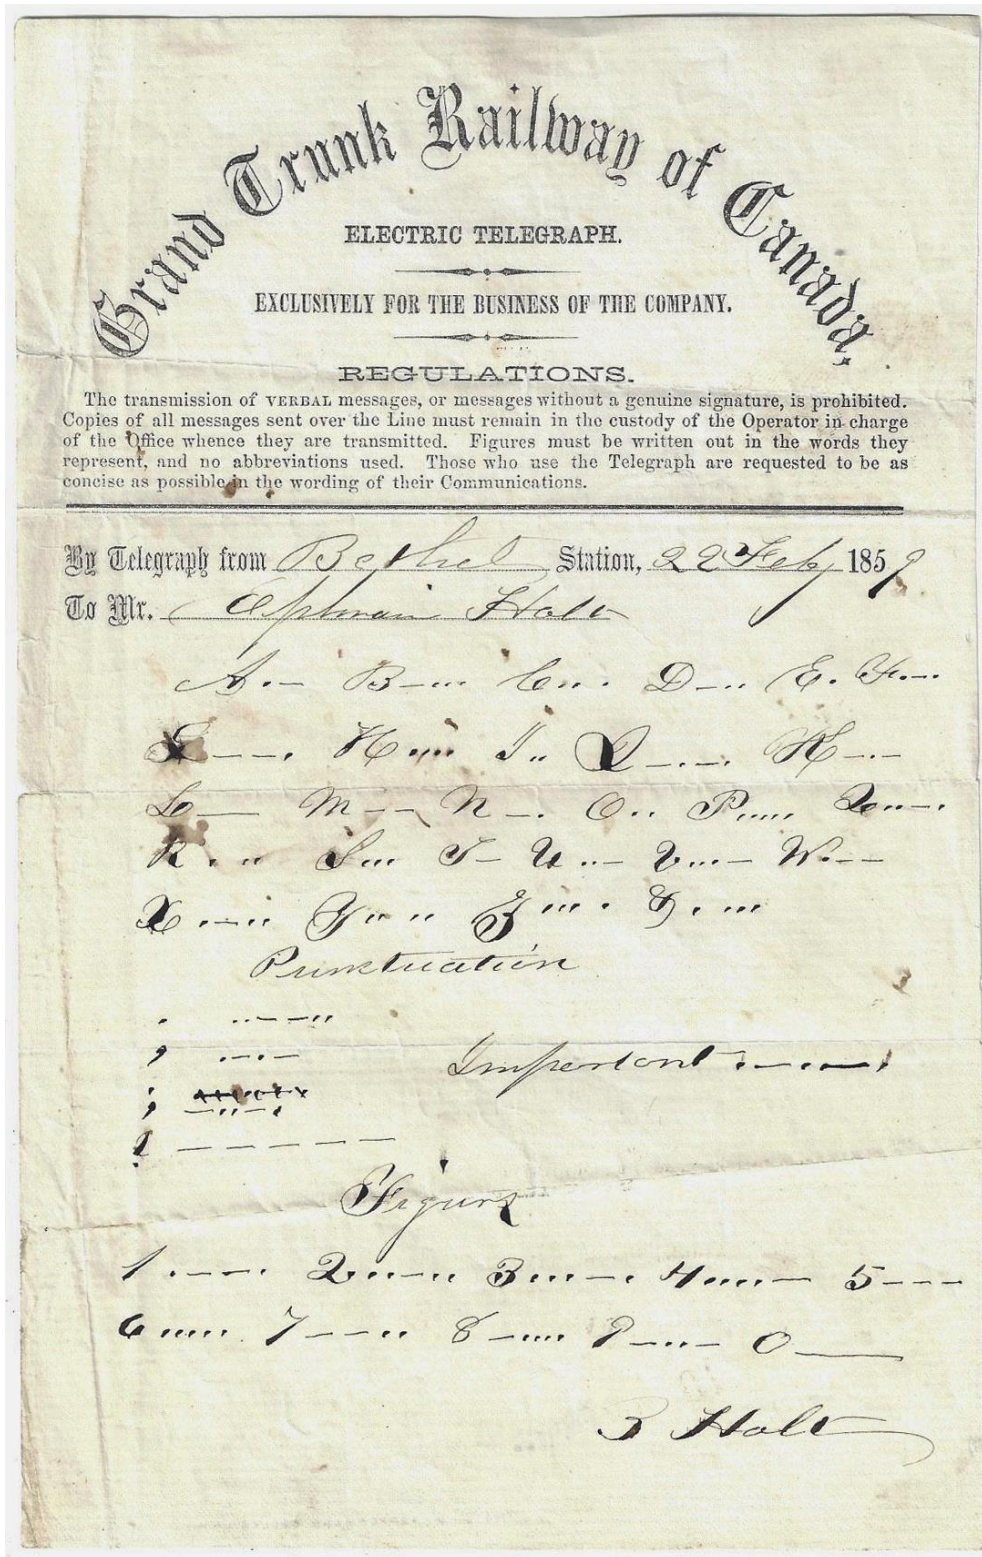 Grand Trunk Railway of Canada,
ELECTRIC TELEGRAPH.
EXCLUSIVELY FOR THE BUSINESS OF THE COMPANY.
REGULATIONS.
The transmission of VERBAL messages, or messages without a genuine signature, is prohibited.
Copies of all messages sent over the Line must remain in the custody of the Operator in charge
of the Office whence they are transmitted. Figures must be written out in the words they
represent, and no abbreviations used. Those who use the Telegraph are requested to be as
concise as possible in the wording of their Communications.
By Telegraph from Bethel Station, 22 Feby 1859
To Mr. Holt
A .- B -... C .. . D -.. E . F .-.
G --. H .... I .. Q -.-. K -.-
L — M -- N -. O . . P ..... Q ..-.
R . .. S ... T - U ..- V ...- W .--
X .-.. Y .. .. Z ... . & . ...
Punctuation
. ..--..
, .-.-
Important
;
! -----
Figures
1 .--. 2 ..-.. 3 ...-. 4 ....- 5 ---
6 ...... 7 --.. 8 -.... 9 -..- 0 —
Holt